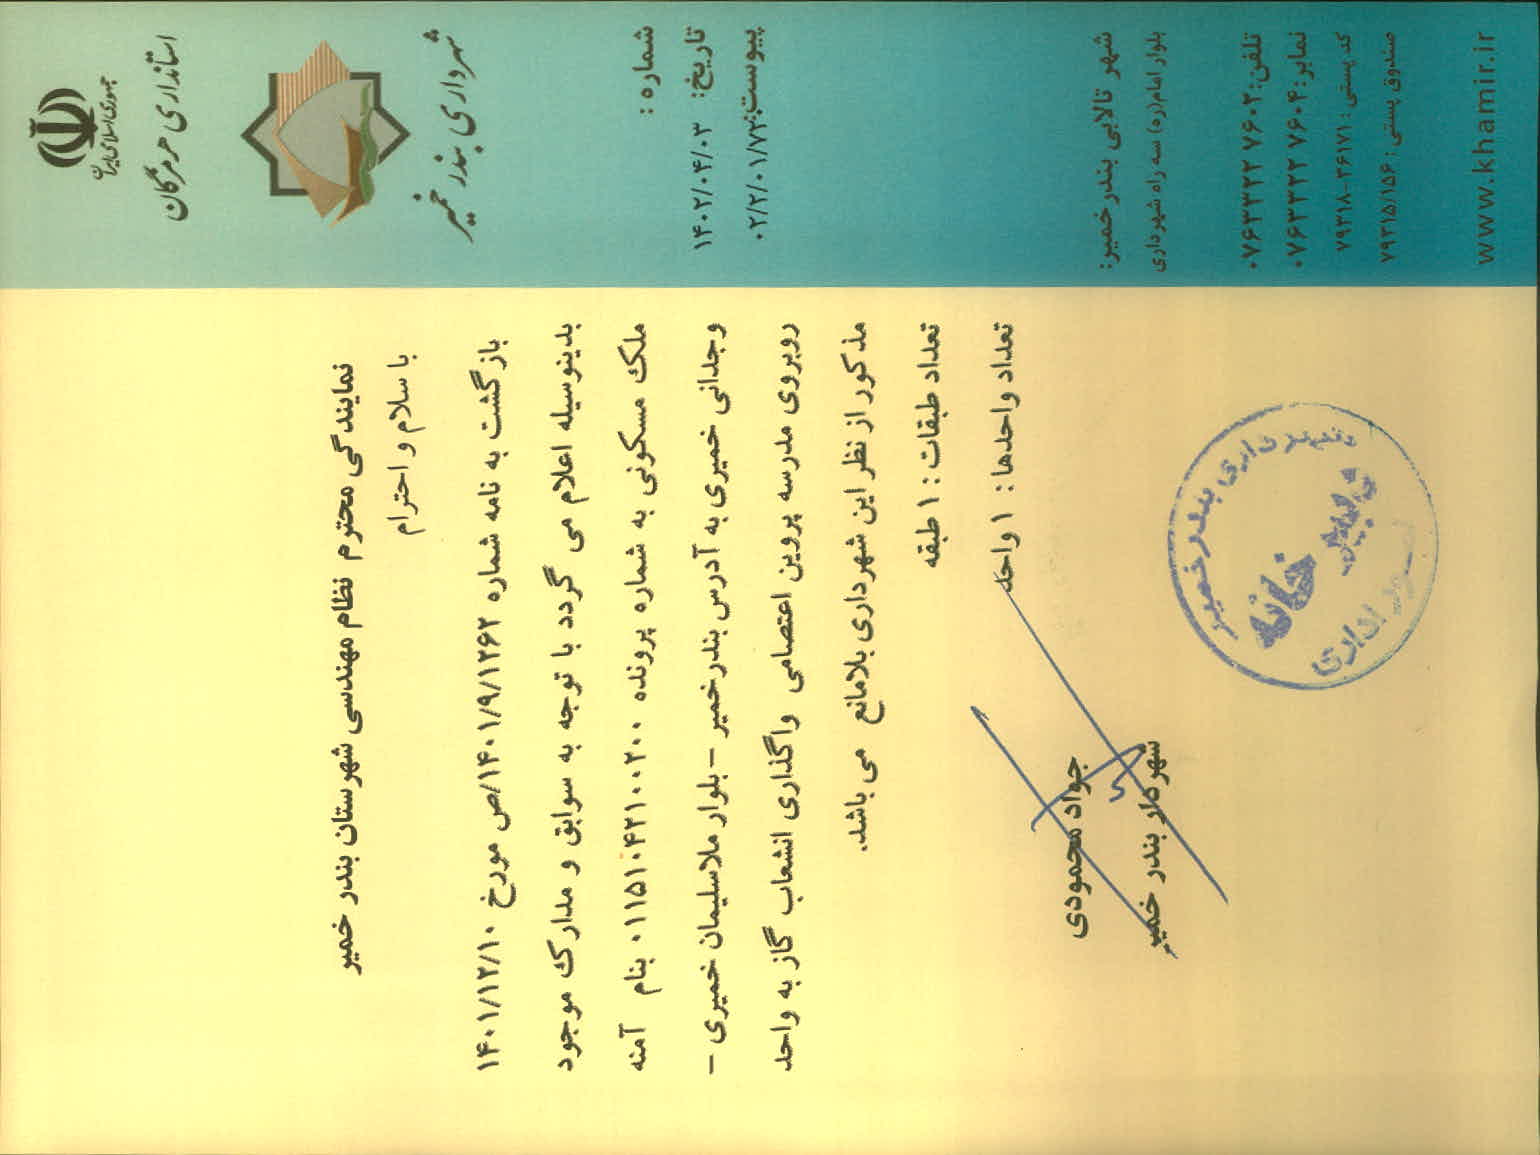 جمهوری اسلامی ایران
استانداری هرمزگان
شهرداری بندر خمیر
شماره:
تاریخ: ۱۴۰۲/۰۴/۰۳
پیوست: ۰۲/۲/۰۱/۷۲
نمایندگی محترم نظام مهندسی شهرستان بندر خمیر
با سلام و احترام
بازگشت به نامه شماره ۱۴۰۱/۹/۱۲۶۲/ص مورخ ۱۴۰۱/۱۲/۱۰
بدینوسیله اعلام می گردد با توجه به سوابق و مدارک موجود
ملک مسکونی به شماره پرونده ۰۱۱۵۱۰۴۲۱۰۰۲۰۰ بنام آمنه
وجدانی خمیری به آدرس بندر خمیر – بلوار ملاسلیمان خمیری –
روبروی مدرسه پروین اعتصامی واگذاری انشعاب گاز به واحد
مذکور از نظر این شهرداری بلامانع می باشد.
تعداد طبقات: ۱ طبقه
تعداد واحدها: ۱ واحد
جواد محمودی
شهردار بندر خمیر
شهرداری بندر خمیر
دبیر خانه
امور اداری
شهر تالابی بندر خمیر:
بلوار امام(ره) سه راه شهرداری
تلفن: ۰۷۶۳۳۲۲۷۶۰۲
نمابر: ۰۷۶۳۳۲۲۷۶۰۴
کد پستی: ۷۹۳۱۸-۳۶۱۷۱
صندوق پستی: ۷۹۳۱۵/۱۵۶
www.khamir.ir